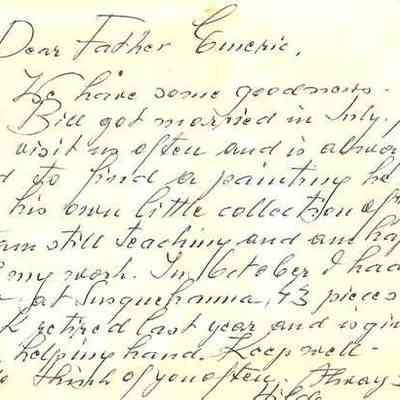 Dear Father Emeric,
We have some good news.
Bill got married in July.
visit us often and is
to find a painting he
his own little collection of
am still teaching and am
my work. In October I had
at Susquehanna, 43 pieces
retired last year and is
helping hand. Keep well -
think of you often.
Hilda